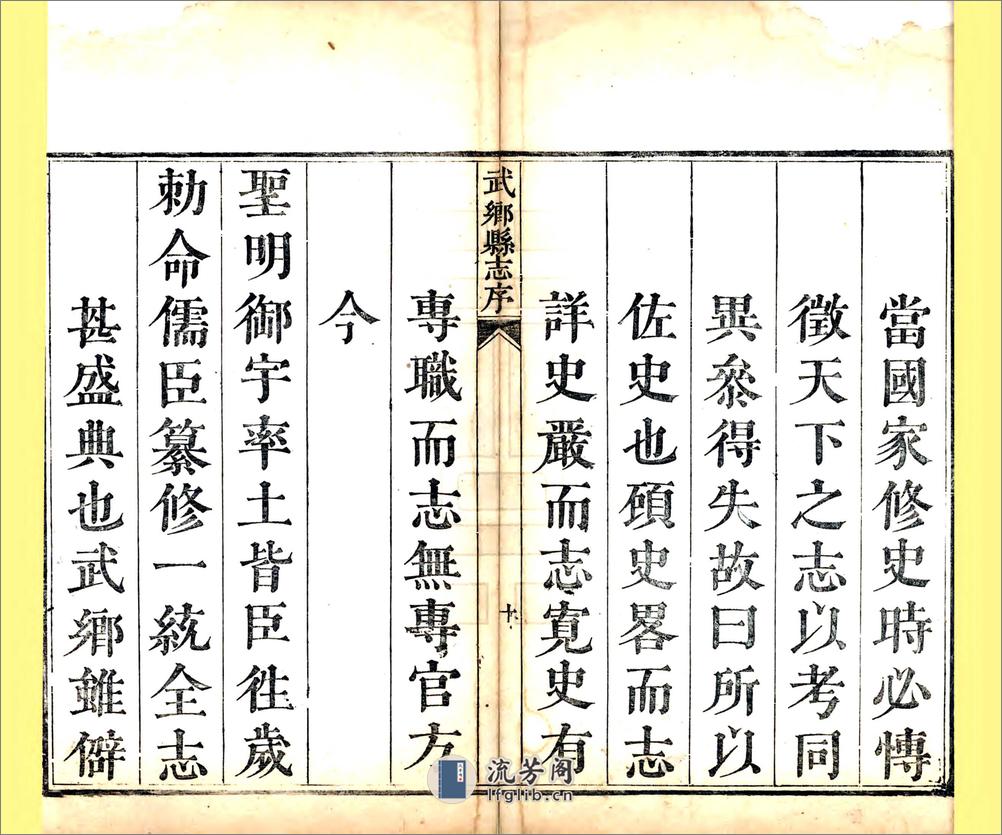 當國家修史時必慱
徵天下之志以考同
異叅得失故曰所以
佐史也碩史畧而志
詳史嚴而志寛史有
武鄉縣志序
十
專職而志無專官方
今
聖明御宇率土皆臣徃歲
勅命儒臣纂修一統全志
甚盛典也武鄉雖僻
流芳阁
lfglib.cn